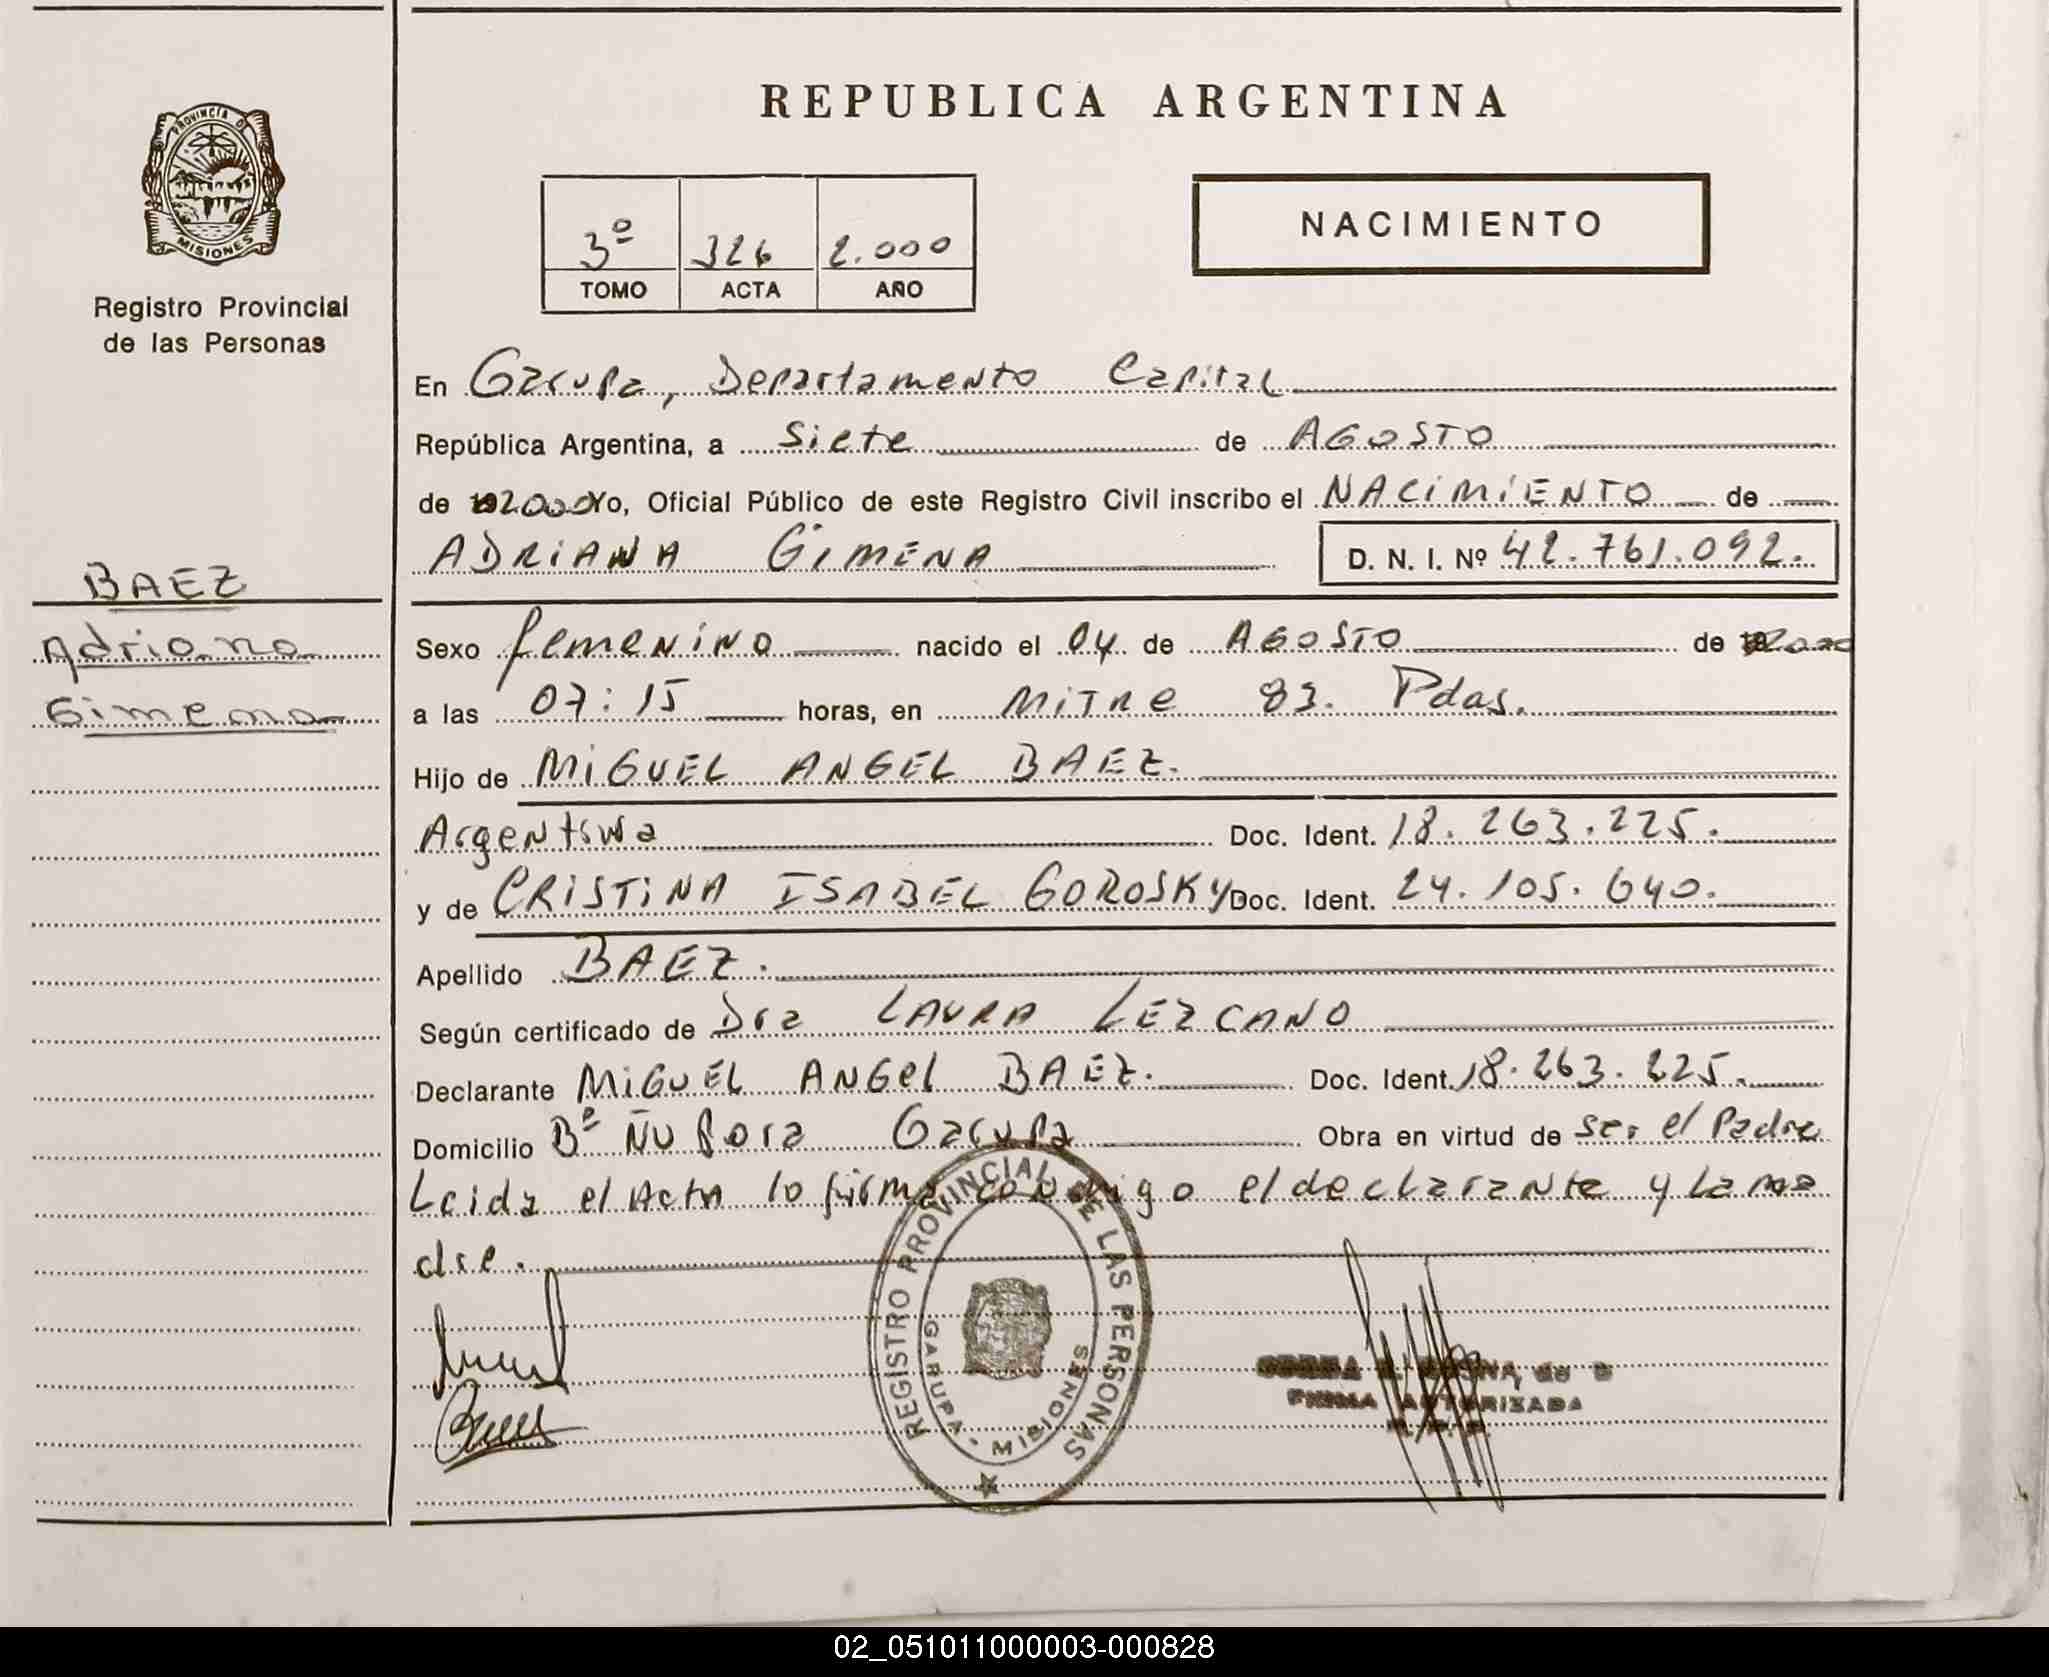 REPUBLICA ARGENTINA
PROVINCIA DE
MISIONES
Registro Provincial
de las Personas
3º 326 2.000
TOMO ACTA AÑO
NACIMIENTO
En Garupa, Departamento Capital
República Argentina, a Siete de AGOSTO
de 2000 Yo, Oficial Público de este Registro Civil inscribo el NACIMIENTO de
ADRIANA GIMENA D. N. I. Nº 42.761.092.
BAEZ
Adriana
Gimena
Sexo femenino nacido el 04 de AGOSTO de 2000
a las 07:15 horas, en MITRE 83. Pdas.
Hijo de MIGUEL ANGEL BAEZ.
Argentina Doc. Ident. 18.263.225.
y de CRISTINA ISABEL GOROSKY Doc. Ident. 24.105.640.
Apellido BAEZ.
Según certificado de Dra LAURA LEZCANO
Declarante MIGUEL ANGEl BAEZ. Doc. Ident. 18.263.225.
Domicilio Bº Ñu Pora Garupa Obra en virtud de ser el Padre
Leida el Acta lo firma conmigo el declarante y la ma
dre.
REGISTRO PROVINCIAL DE LAS PERSONAS
GARUPA - MISIONES
de B
FIRMA AUTORIZADA
02_051011000003-000828